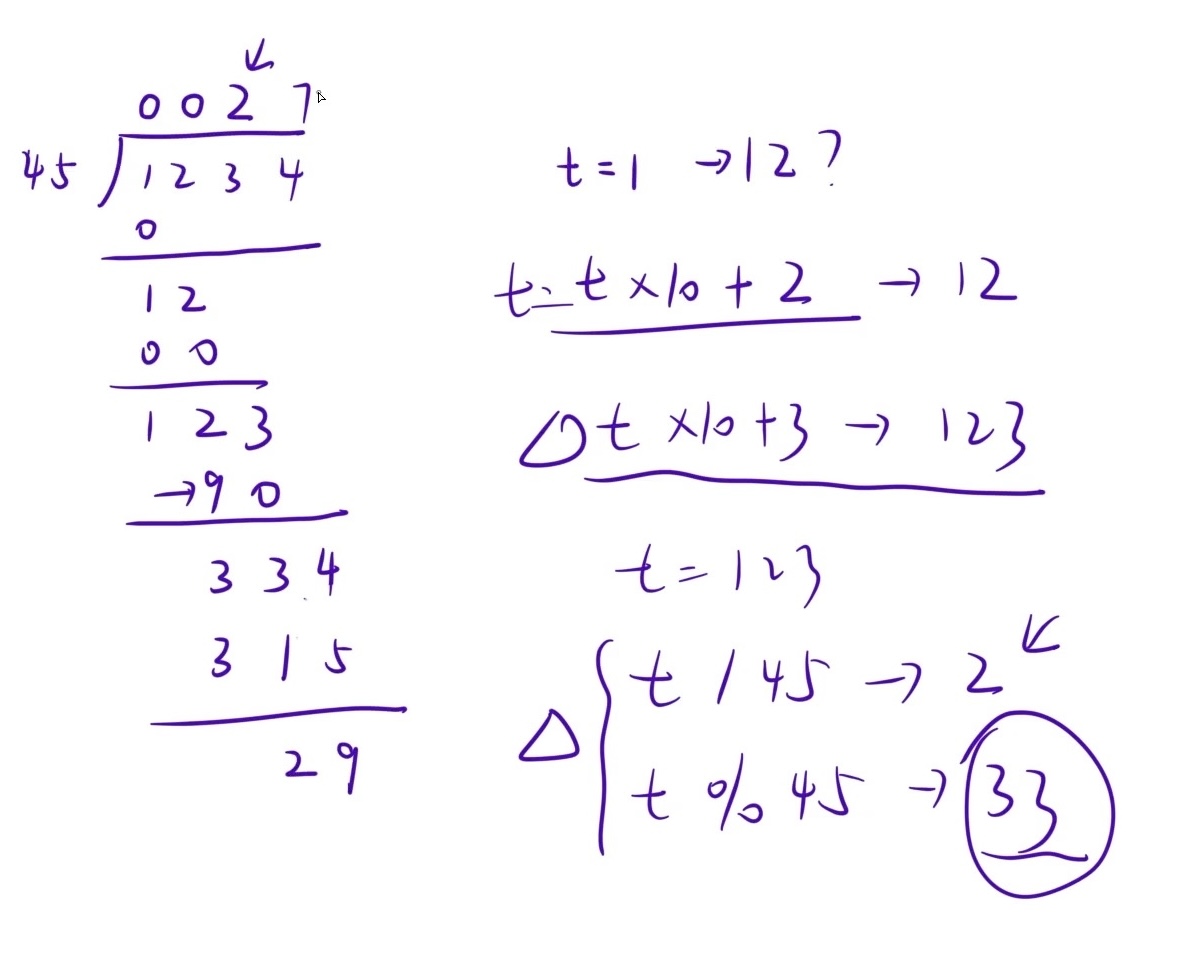 0 0 2 7
45 1 2 3 4
0
1 2
0 0
1 2 3
→ 9 0
3 3 4
3 1 5
2 9
t = 1 → 12 ?
t = t × 10 + 2 → 12
△ t × 10 + 3 → 123
t = 123
t / 45 → 2
△
t % 45 → 33